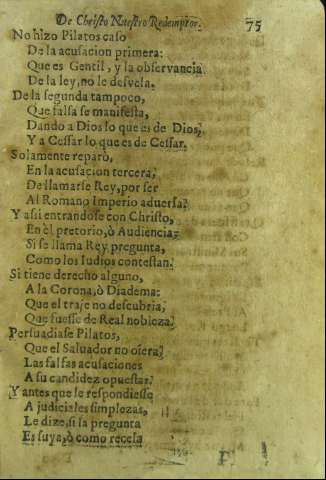 De Christo Nuestro Redemptor. 75
No hizo Pilatos caso
De la acusacion primera:
Que es Gentil, y la observancia
De la ley, no le desvela.
De la segunda tampoco,
Que falsa se manifesta,
Dando a Dios lo que es de Dios,
Y a Cessar lo que es de Cessar.
Solamente reparò,
En la acusacion tercera,
De llamarse Rey, por ser
Al Romano Imperio adversa?
Y assi entrandose con Christo,
En el pretorio, ò Audiencia,
Si se llama Rey pregunta,
Como los Iudios contestan.
Si tiene derecho alguno,
A la Corona, ò Diadema:
Que el traje no descubria,
Que fuesse de Real nobleza?
Persuadiase Pilatos,
Que el Salvador no osera,
Las falsas acusaciones
A su candidez opuestas?
Y antes que se respondiesse
A judiciales simplezas,
Le dize, si la pregunta
Es suya, ò como recela
F